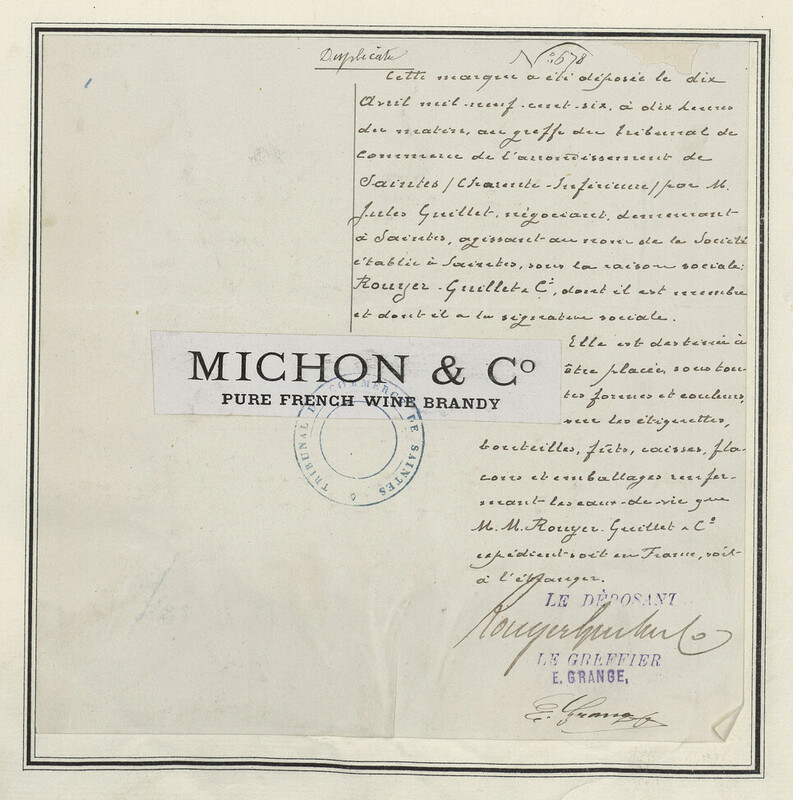 Duplicata
N° 678
Cette marque a été déposée le dix
Avril mil-neuf-cent-six, à dix heures
du matin, au greffe du tribunal de
Commerce de l'arrondissement de
Saintes / Charente-Inférieure / par M.
Jules Guillet, négociant, demeurant
à Saintes, agissant au nom de la Société
établie à Saintes, sous la raison sociale:
Rouyer-Guillet & Cie, dont il est membre
et dont il a la signature sociale.
Elle est destinée à
être placée, sous tou-
tes formes et couleurs,
sur les étiquettes,
bouteilles, fûts, caisses, fla-
cons et emballages renfer-
mant les eaux-de-vie que
M.M. Rouyer-Guillet & Cie
expédient soit en France, soit
à l'étranger.
MICHON & Co
PURE FRENCH WINE BRANDY
TRIBUNAL DE COMMERCE DE SAINTES
LE DÉPOSANT
Rouyer Guillet & Co
LE GREFFIER
E. GRANGE,
E. Grange